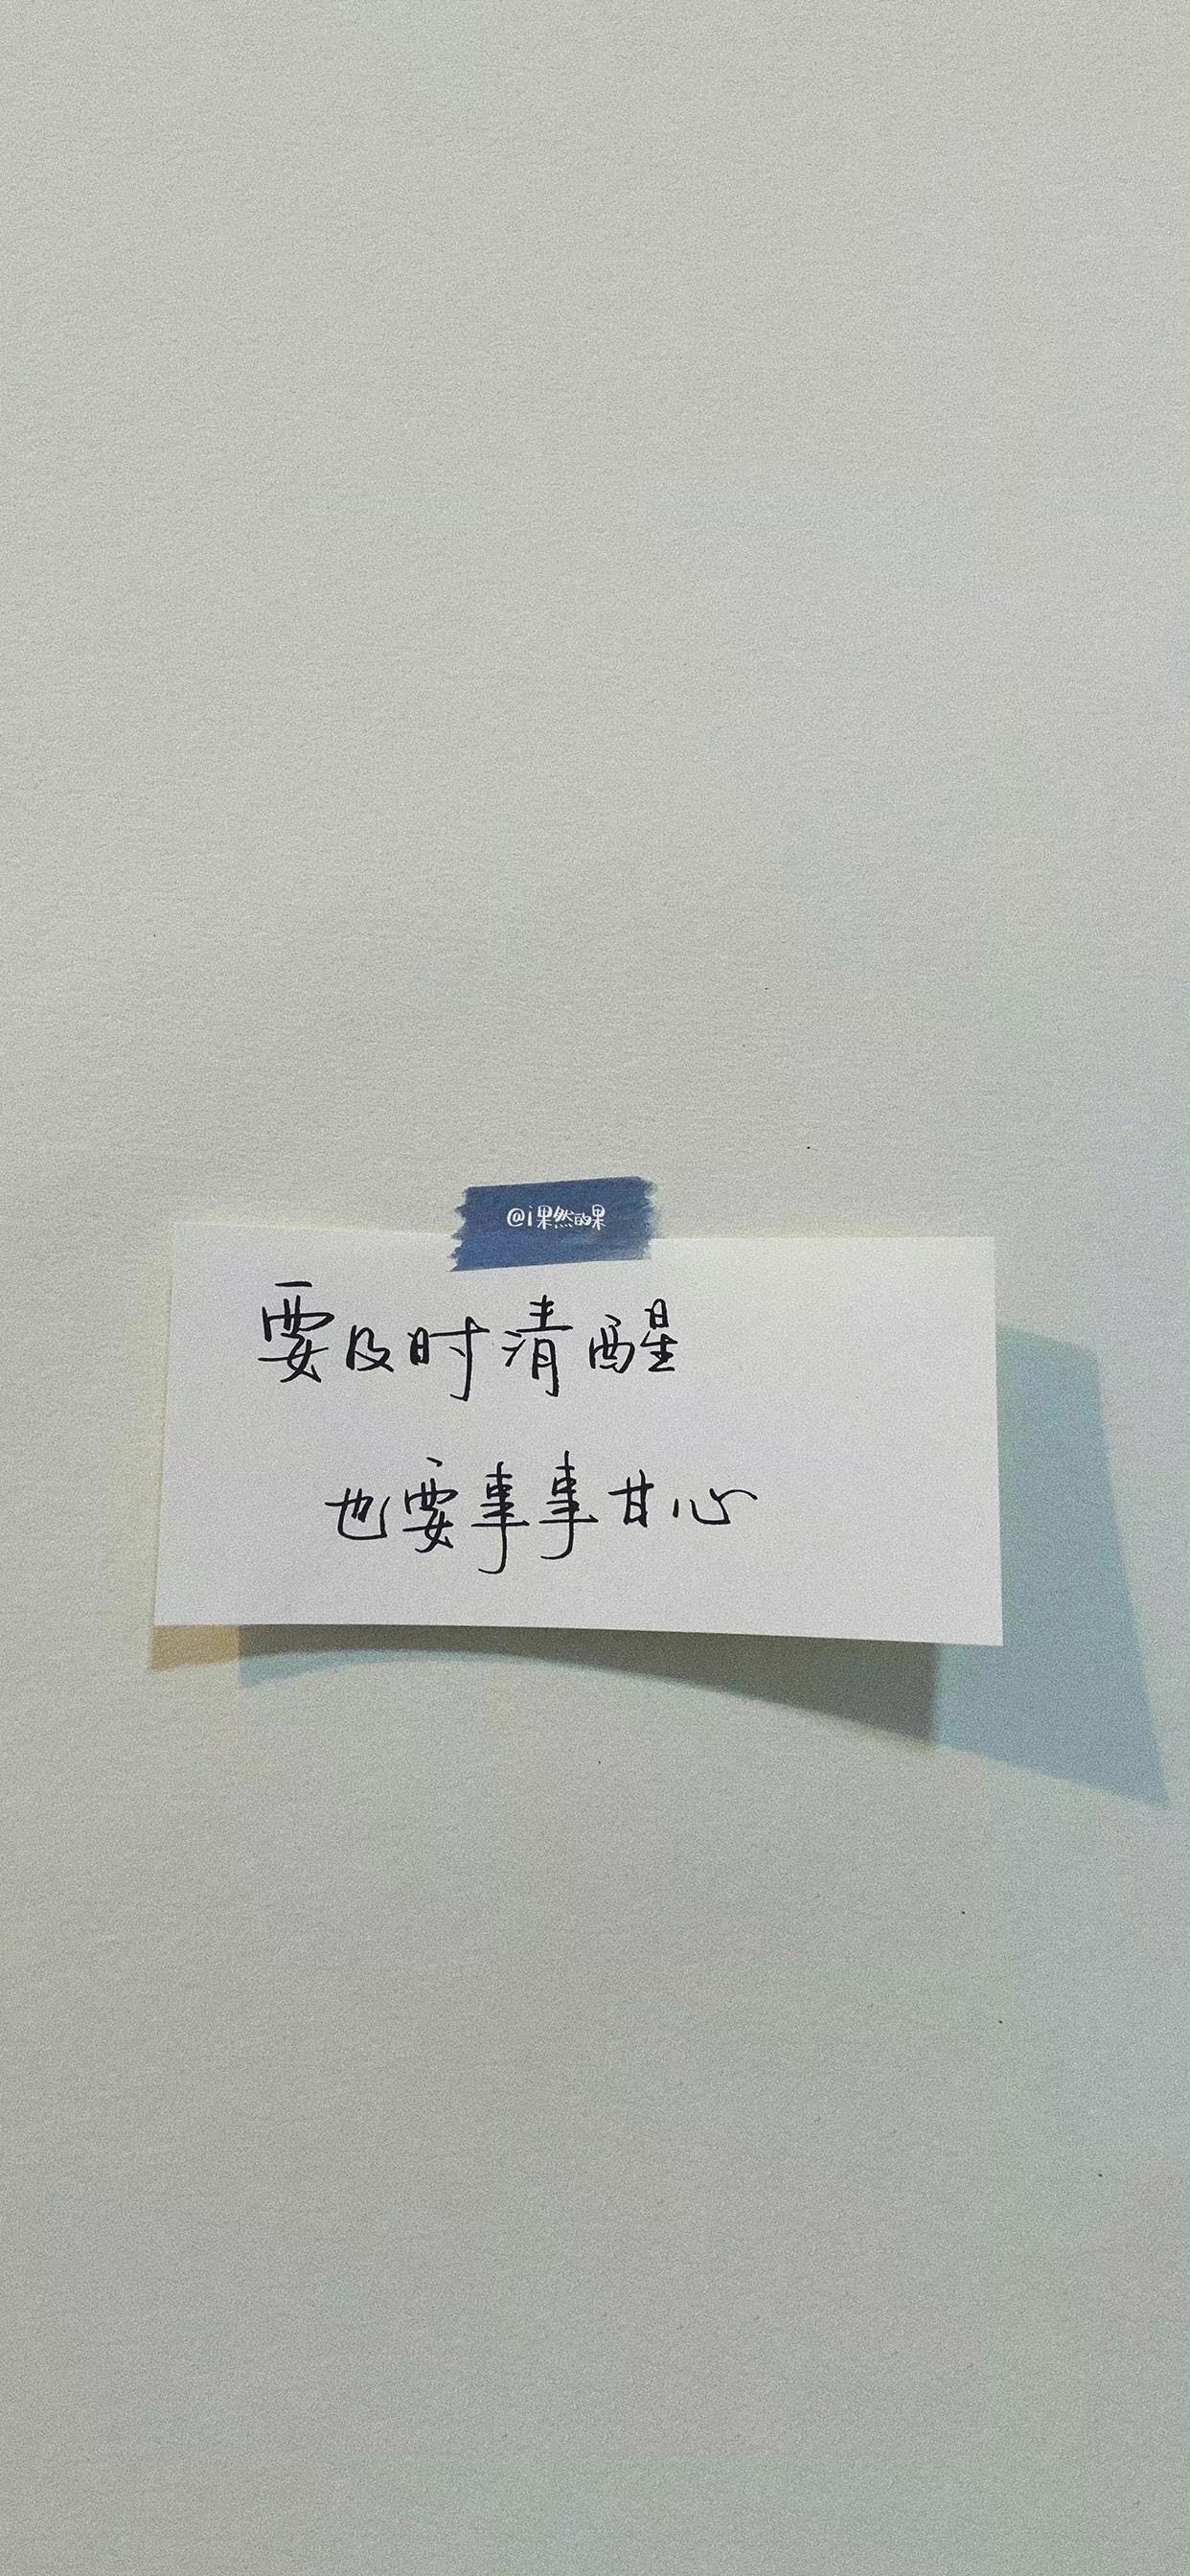 @i果然的果
要及时清醒
也要事事甘心